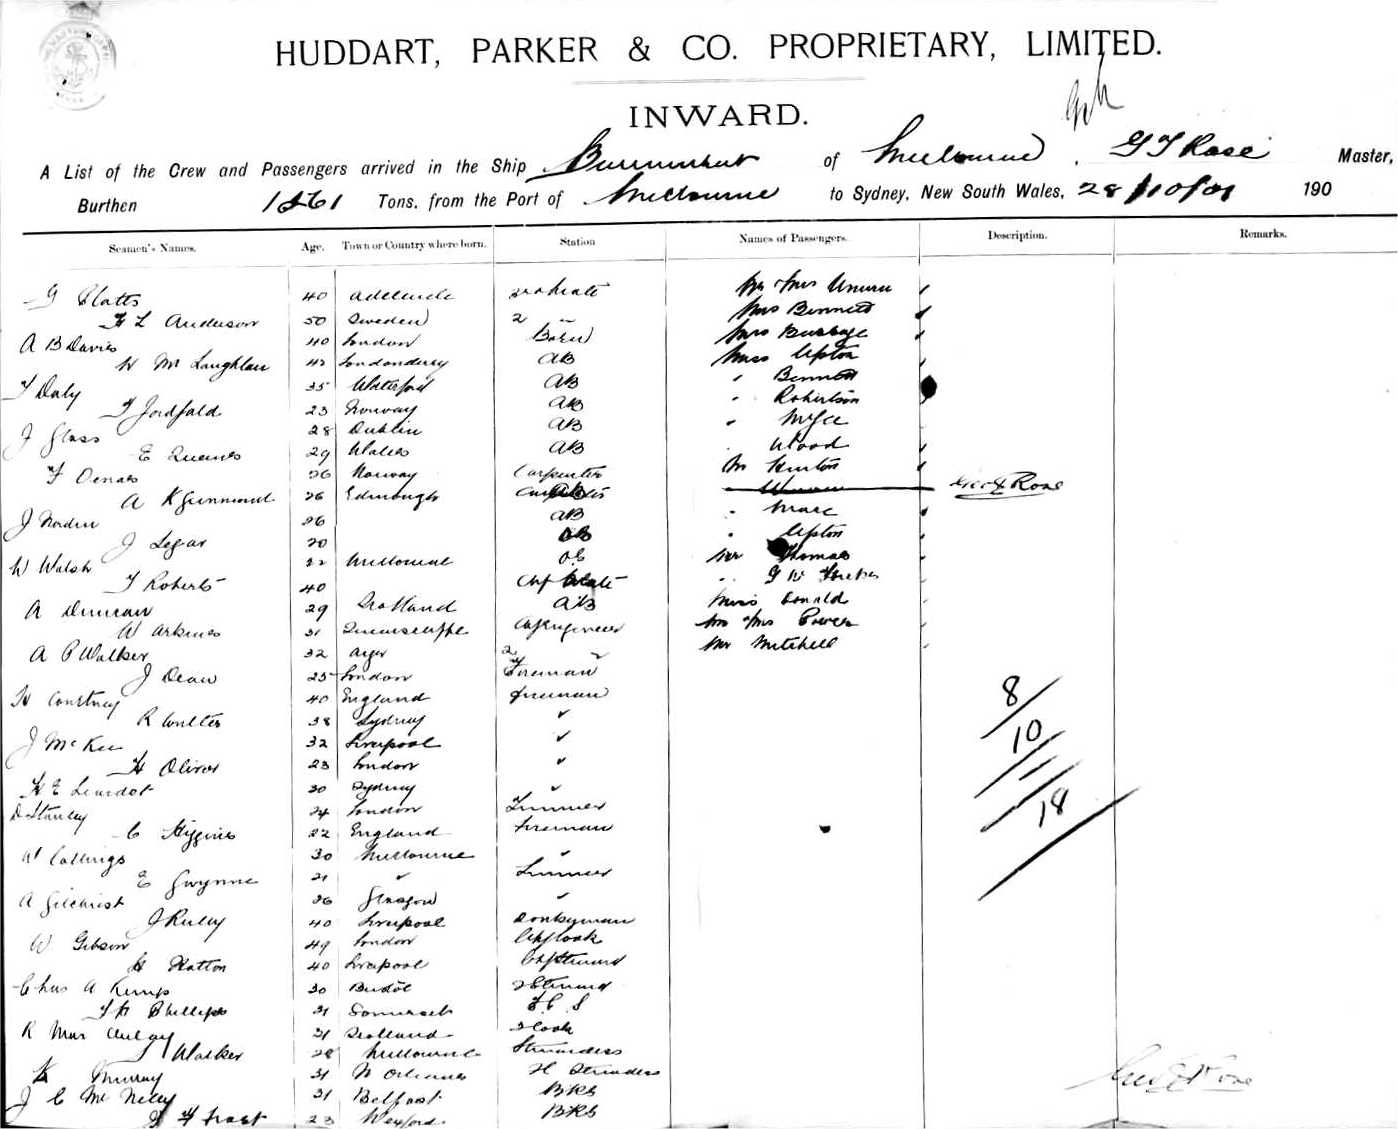 HUDDART, PARKER & CO. PROPRIETARY, LIMITED.
INWARD.
A List of the Crew and Passengers arrived in the Ship Burrumbeet of Melbourne, G T Rose Master,
Burthen Tons, from the Port of Melbourne to Sydney, New South Wales, 28/10/01 190
Seamen's Names. Age. Town or Country where born. Station Names of Passengers. Description. Remarks.
G Platts 40 Adelaide 2nd Mate Mr & Mrs Unwin
H L Anderson 50 Sweden 2 Mrs Bennett
A B Davies 40 London Mrs
W McLaughlan Londonderry AB Miss Upton
T Daly 35 Waterford AB " Bennett
T Jordfald 23 Norway AB " Robertson
J Glass 28 Dublin AB "
E 29 Wales AB " Wood
F 26 Norway Carpenter Mr Hinton
A K Gunnmund 26 Edinburgh AB Geo T Rose
J 26 AB "
J Legar 20 OS " Upton
W Walsh 22 Melbourne OS Mr Thomas
T Roberts 40 Chf Mate " G W
A Duncan 29 Scotland AB Miss Donald
W 31 Queenscliffe Chf Engineer Mr & Mrs Power
A P Walker 32 2 " Mr Mitchell
J Dean 25 London Fireman
H Courtney 40 England Fireman 8
R Coulter 38 Sydney " 10
J McKee 32 Liverpool "
H Oliver 23 London "
H E Liardet 30 Sydney " 18
D Stanley 24 London Trimmer
C Higgins 22 England Fireman
W Collings 30 Melbourne "
E Gwynne 21 " Trimmer
A Gilchrist 26 Glasgow "
J Reilly 40 Liverpool Donkeyman
W Gibson 49 London Chf Cook
H Hatton 40 Liverpool Chf Steward
Chas A Kemp 30 2 Steward
T H Phillips 31 Somerset F C S
R MacAulay 31 Scotland 2 Cook
J Walker 28 Melbourne Stewardess
K Murray 31 N Orleans
J C McNeily 31 Belfast BRS
J F Frost 23 Wexford BRS
Geo T Rose